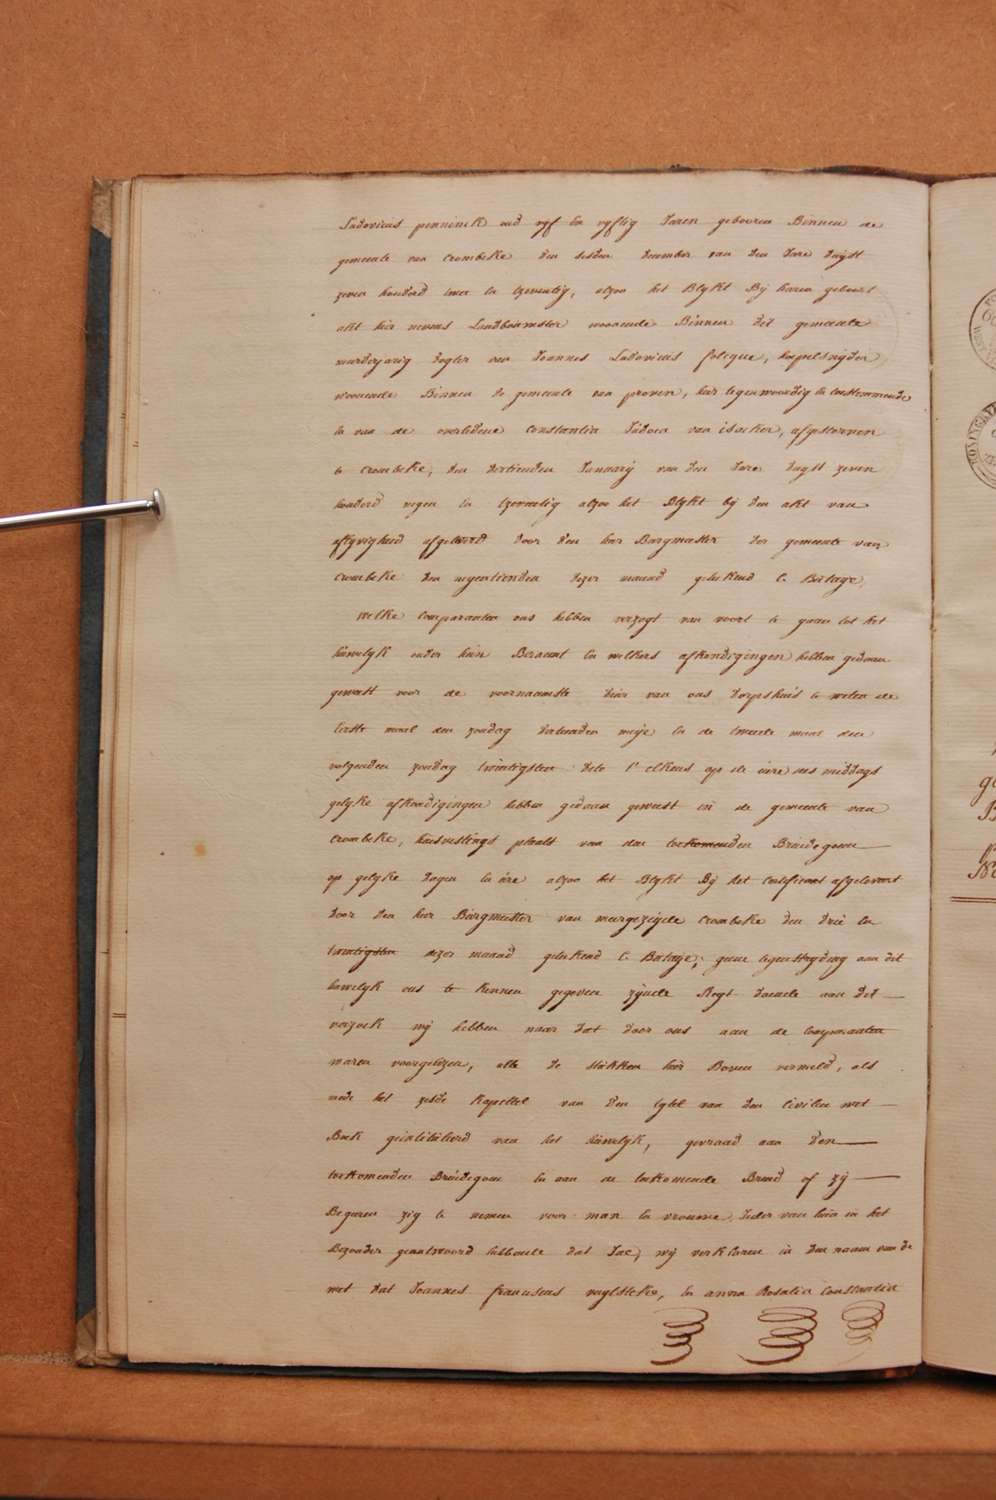 Ludovicus penninck oud vyf en vyftig Jaren gebooren Binnen de
gemeente van Crombeke den sesden december van den Jare duyst
zeven honderd twee en tzeventig, alzoo het Blykt Bij haren geboort
akt hier nevens Landbouwster woonende Binnen des gemeente
meerderjarig dogter van Joannes Ludovicus folcque, hoepelsnyder
woonende Binnen de gemeente van proven, hier tegenwoordig en toestemmende
en van de overledene Constantia Judoca van isacker, afgestorven
te Crombeke, den dertienden January van den Jare duyst zeven
honderd negen en tzeventig alzoo het Blykt bij den akt van
aflyvigheid afgeleverd door den heer Burgmeester der gemeente van
Crombeke den negentienden dezer maand geteekend C. Bätaye,
Welke Comparanten ons hebben verzogt van voort te gaan tot het
hüwelyk onder hün Beraamt en welkers afkondigingen hebben gedaan
geweest voor de voornaamste deür van ons dorpshuis te weten de
Eerste mael den zondag dertienden meije en de tweede maal den
volgenden zondag twintigsten dito t' elkens op de üre des middags
gelyke afkondigingen hebben gedaan geweest in de gemeente van
Crombeke, huisvestings plaats van den toekomenden Brüidegom
op gelyke dagen en üre alzoo het Blykt Bij het Certificaat afgelevert
door den heer Bürgmeester van meergezeijde Crombeke den drie en
twintigsten dezer maand geteekend C. Bätaye; geene tegenstryding aan dit
hüwelyk ons te kennen gegeven zijnde Regt doende aan het
verzoek wij hebben naar dat door ons aan de Comparanten
waren voorgelezen, alle de stükken hier Boven vermeld, als
mede het zesde kapittel van den tytel van den Civilen wet
Boek geintitüleerd van het hüwelyk, gevraad aan den
toekomenden Brüidegom en aan de toekomende Bruid of zij
Begeren zig te nemen voor man en vrouwe, Jeder van hün in het
Bezonder geantwoord hebbende dat Jae, wij verklaren in den naam van de
wet dat Joannes franciscus wylsteke, en anna Rosalia Constantia